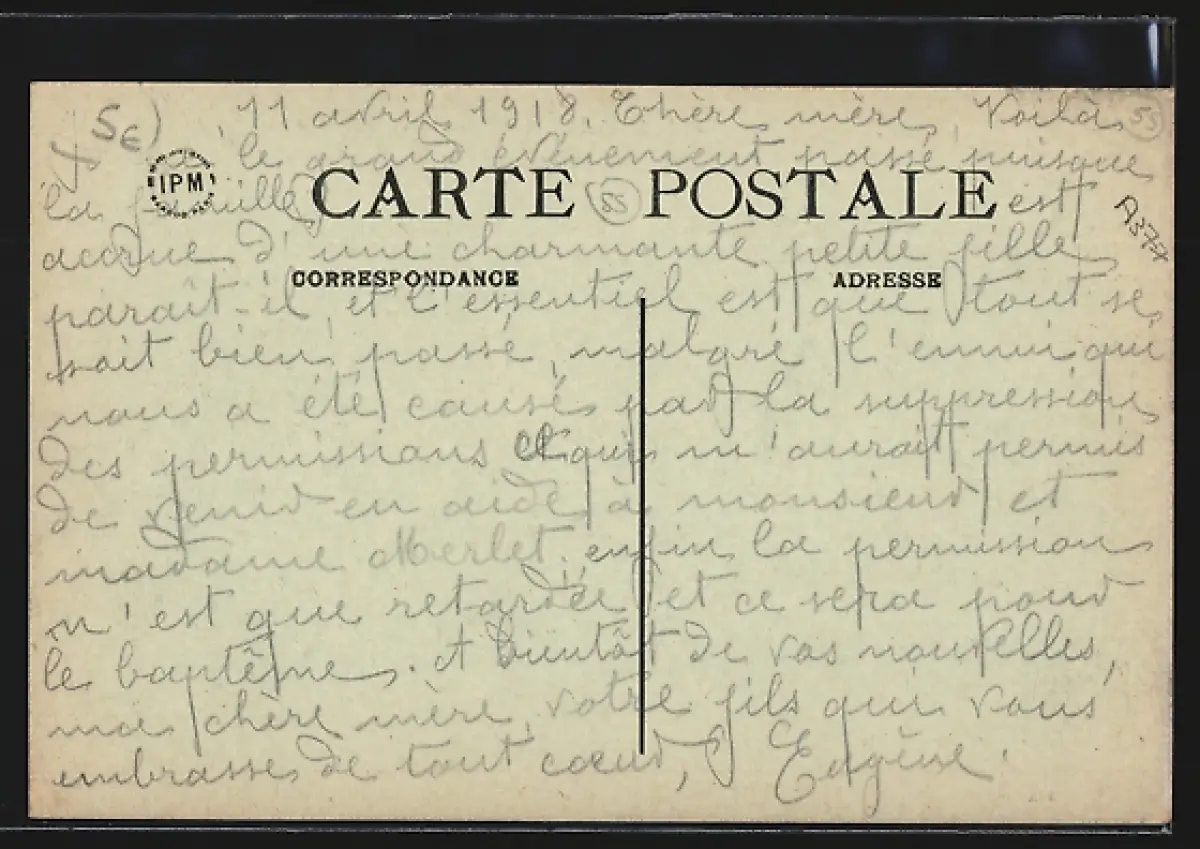 5€)
11 avril 1918. Chère mère, Voilà
55
le grand événement passé puisque
IPM
la famille
CARTE POSTALE
55
est
A377
accrue d'une charmante petite fille,
CORRESPONDANCE
ADRESSE
paraît-il, et l'essentiel est que tout se
soit bien passé, malgré l'ennui qui
nous a été causé par la suppression
des permissions et qui m'aurait permis
de venir en aide à monsieur et
madame Merlet; enfin la permission
n'est que retardée et ce sera pour
le baptême. A bientôt de vos nouvelles,
ma chère mère, votre fils qui vous
embrasse de tout cœur, Eugène.